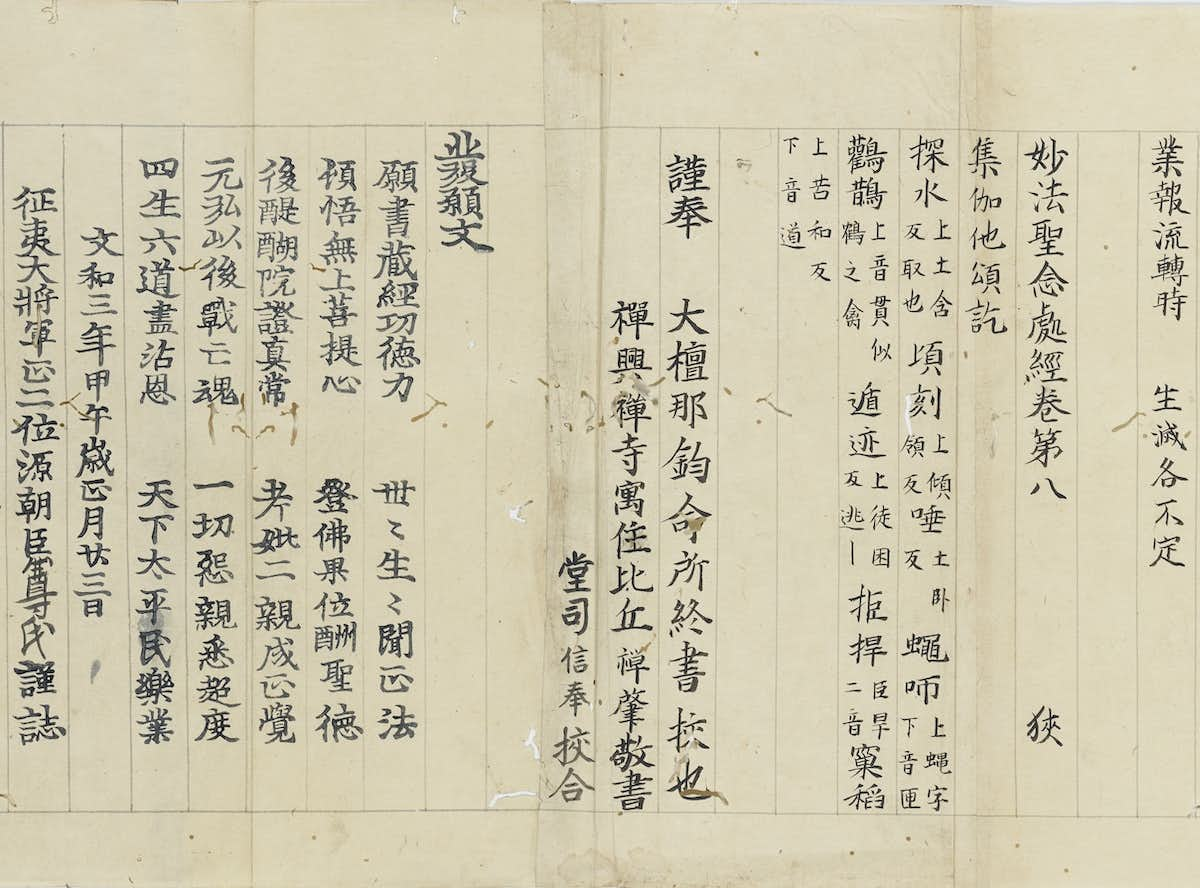 業報流轉時 生滅各不定
妙法聖念處經卷第八 狹
集伽他頌訖
探水上土含反取也 頃刻上傾領反 唾土卧反 蠅咂上蝿字下音匝
鸛鵲上音貫似鶴之禽 遁迹上徒困反逃〡 拒捍臣旱二音 窠稻
上苦和反下音道
謹奉 大檀那鈞命所終書挍也
禪興禪寺寓住比丘禅肇敬書
堂司信奉挍合
發願文
願書藏經功徳力 世〻生〻聞正法
頓悟無上菩提心 登佛果位酬聖徳
後醍醐院證真常 考妣二親成正覺
元弘以後戰亡魂 一切怨親悉超度
四生六道盡沾恩 天下太平民樂業
文和三年甲午歳正月廿三日
征夷大將軍正二位源朝臣尊氏謹誌